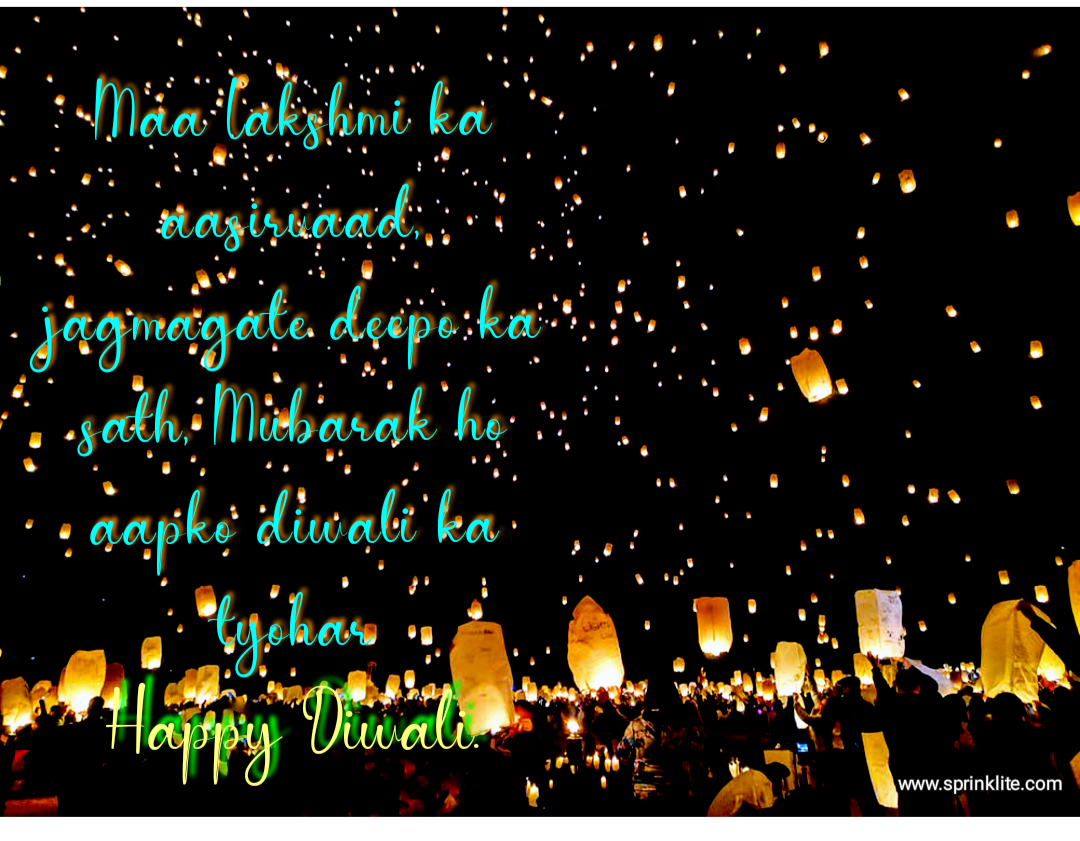 Maa lakshmi ka
aasirvaad,
jagmagate deepo ka
sath, Mubarak ho
aapko diwali ka
tyohar
Happy Diwali.
www.sprinklite.com